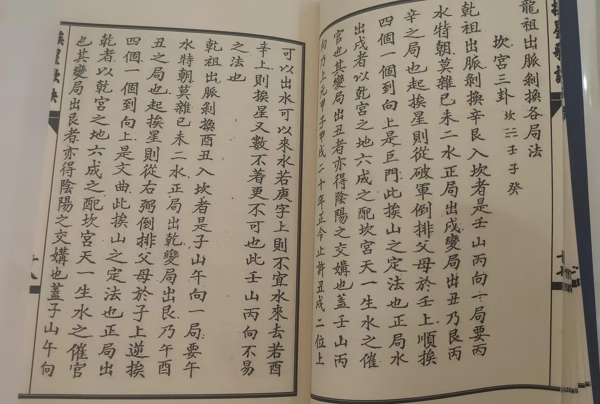 龍祖出脈剝換各局法
坎宫三卦 坎☵壬子癸
乾祖出脈剝換辛艮入坎者是壬山丙向一局要丙
水特朝莫雜巳未二水正局出戌變局出丑乃艮丙
辛之局也起挨星則從破軍倒排父母於壬上順挨
四個一個到向上是巨門此挨山之定法也正局水
出戌者以乾宫之地六成之配坎宫天一生水之催
官也其變局出丑者亦得陰陽之交媾也蓋壬山丙
向乃上元甲子甲戌二十年正令止許丑戌二位上
可以出水可以來水若庚字上則不宜水來去若酉
辛上則挨星又數不著更不可也此壬山丙向不易
之法也
乾祖出脈剝換酉丑入坎者是子山午向一局要午
水特朝莫雜巳未二水正局出乾變局出艮乃午酉
丑之局也起挨星則從右弼倒排父母於子上逆挨
四個一個到向上是文曲此挨山之定法也正局出
乾者以乾宫之地六成之配坎宫天一生水之催官
也其變局出艮者亦得陰陽之交媾也蓋子山午向
挨星
十八